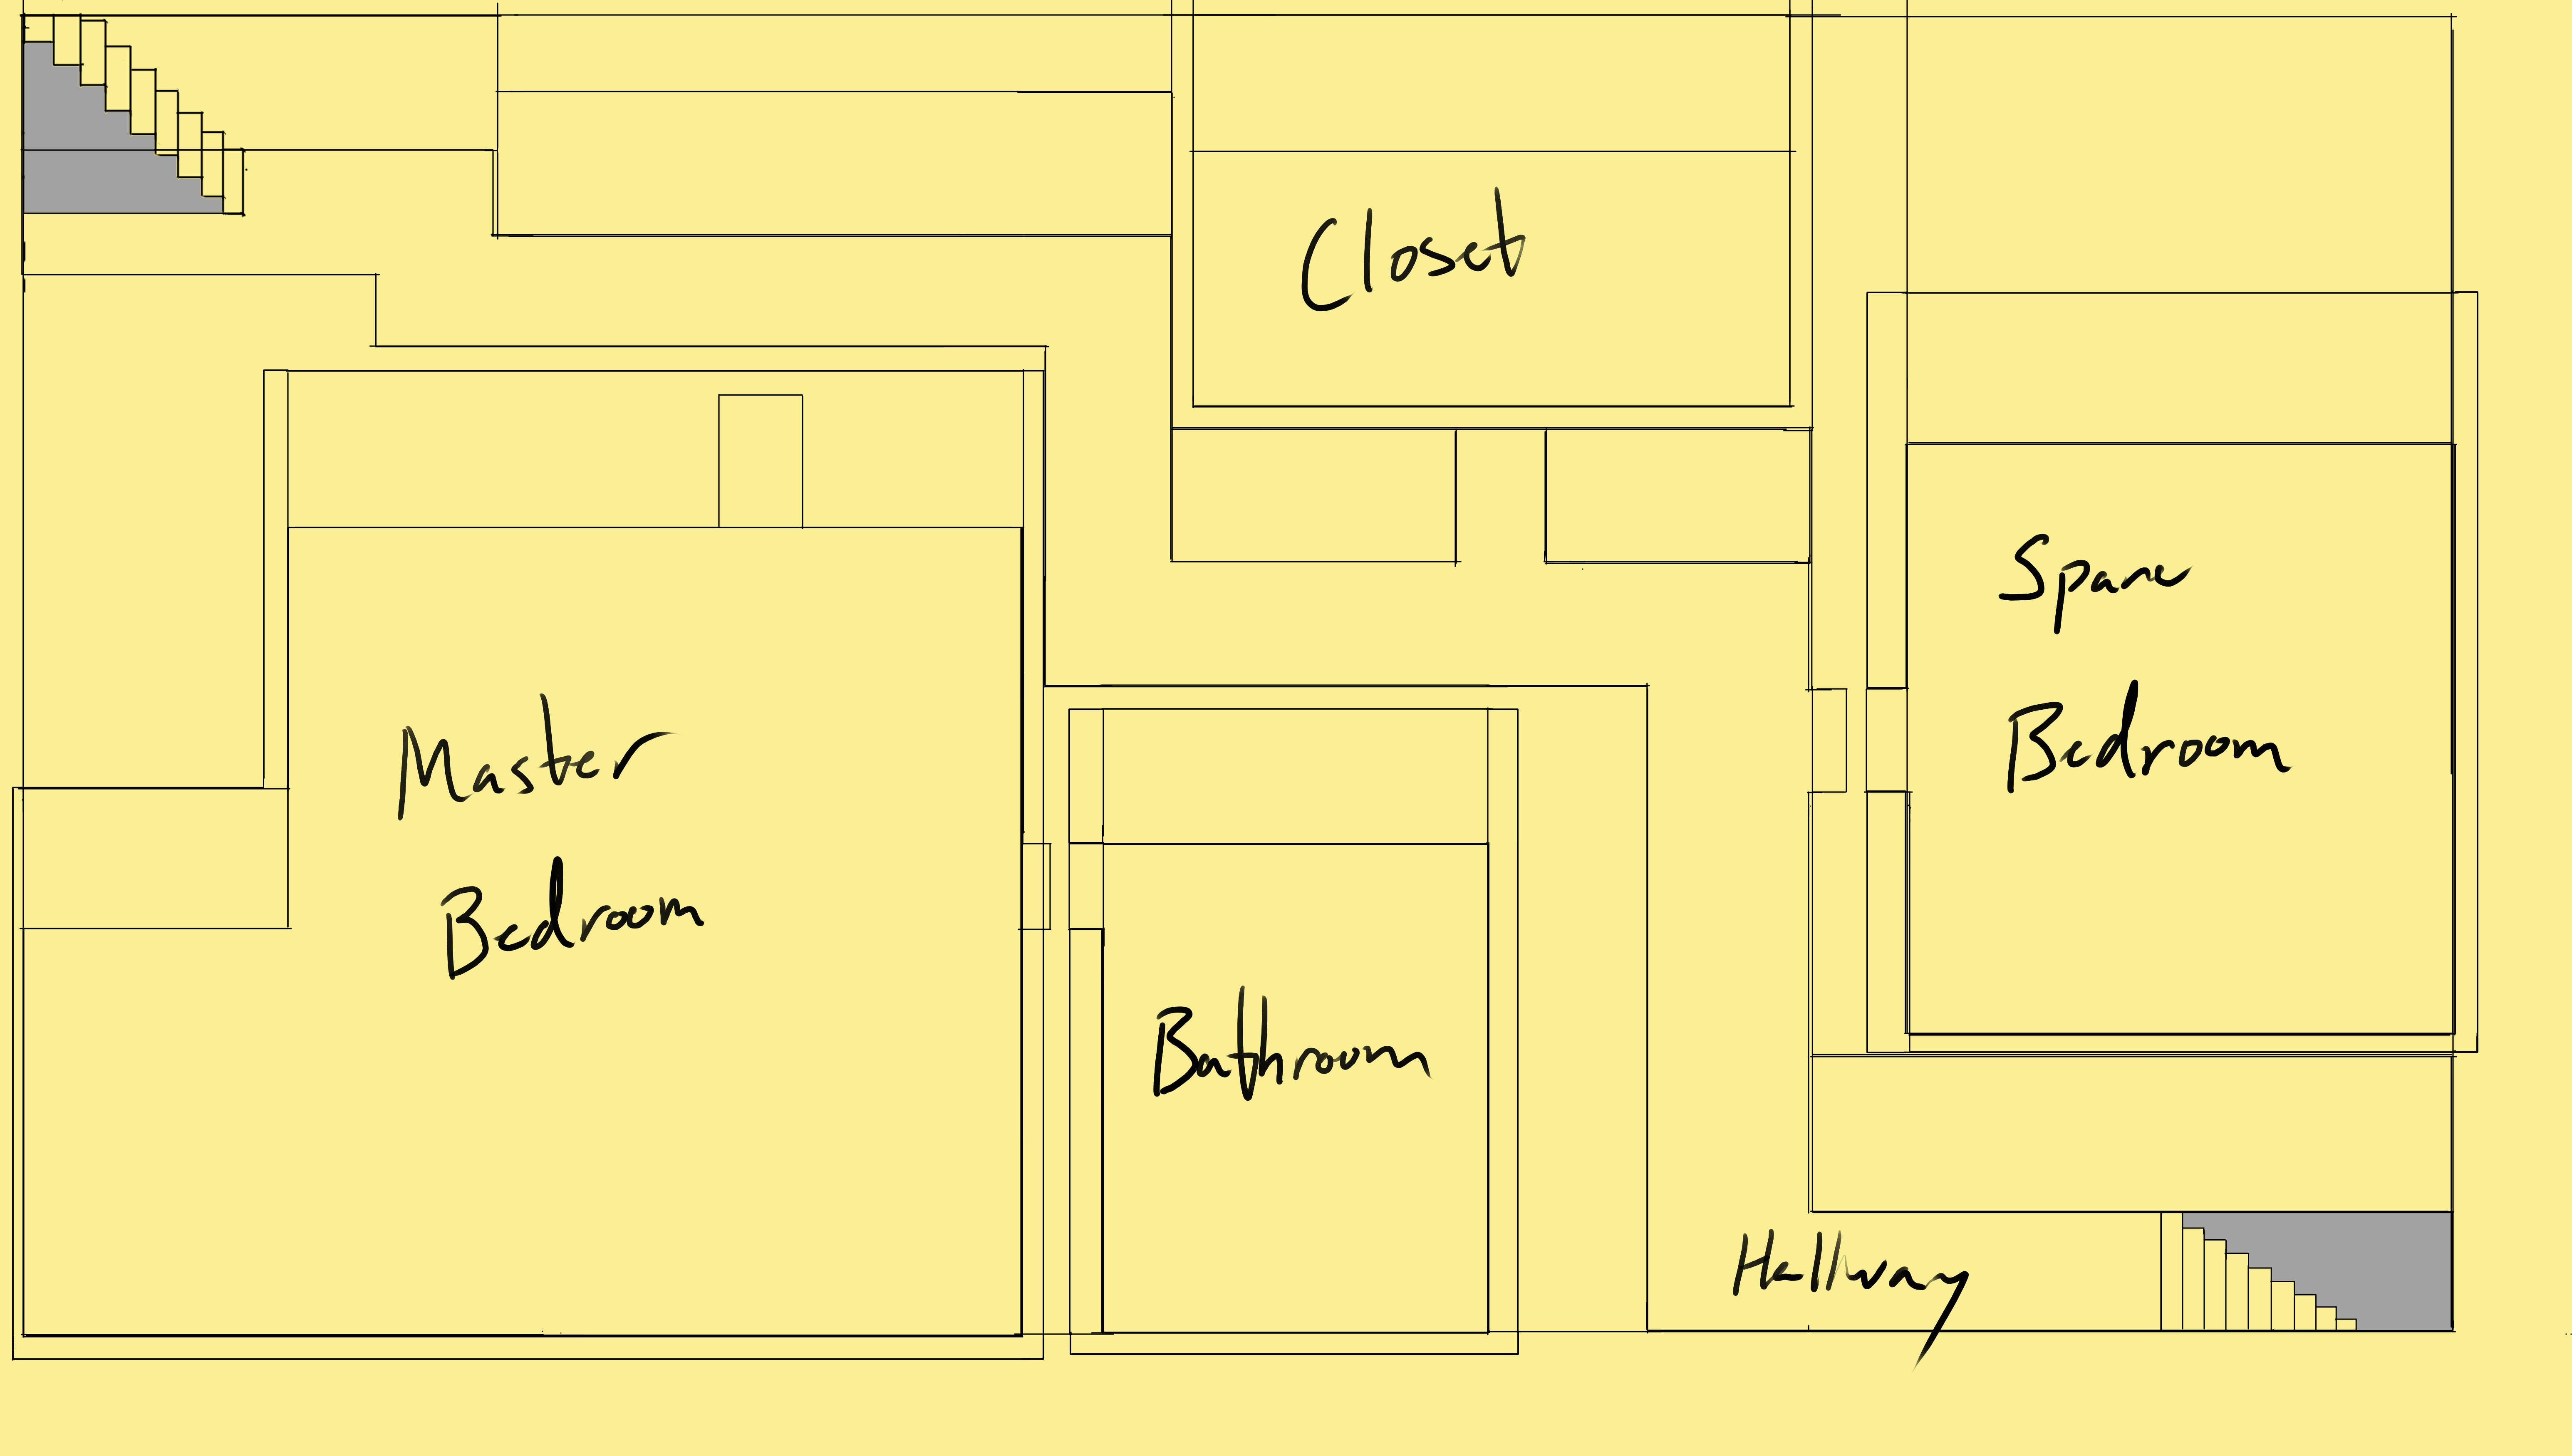 Closet
Spare
Bedroom
Master
Bedroom
Bathroom
Hallway